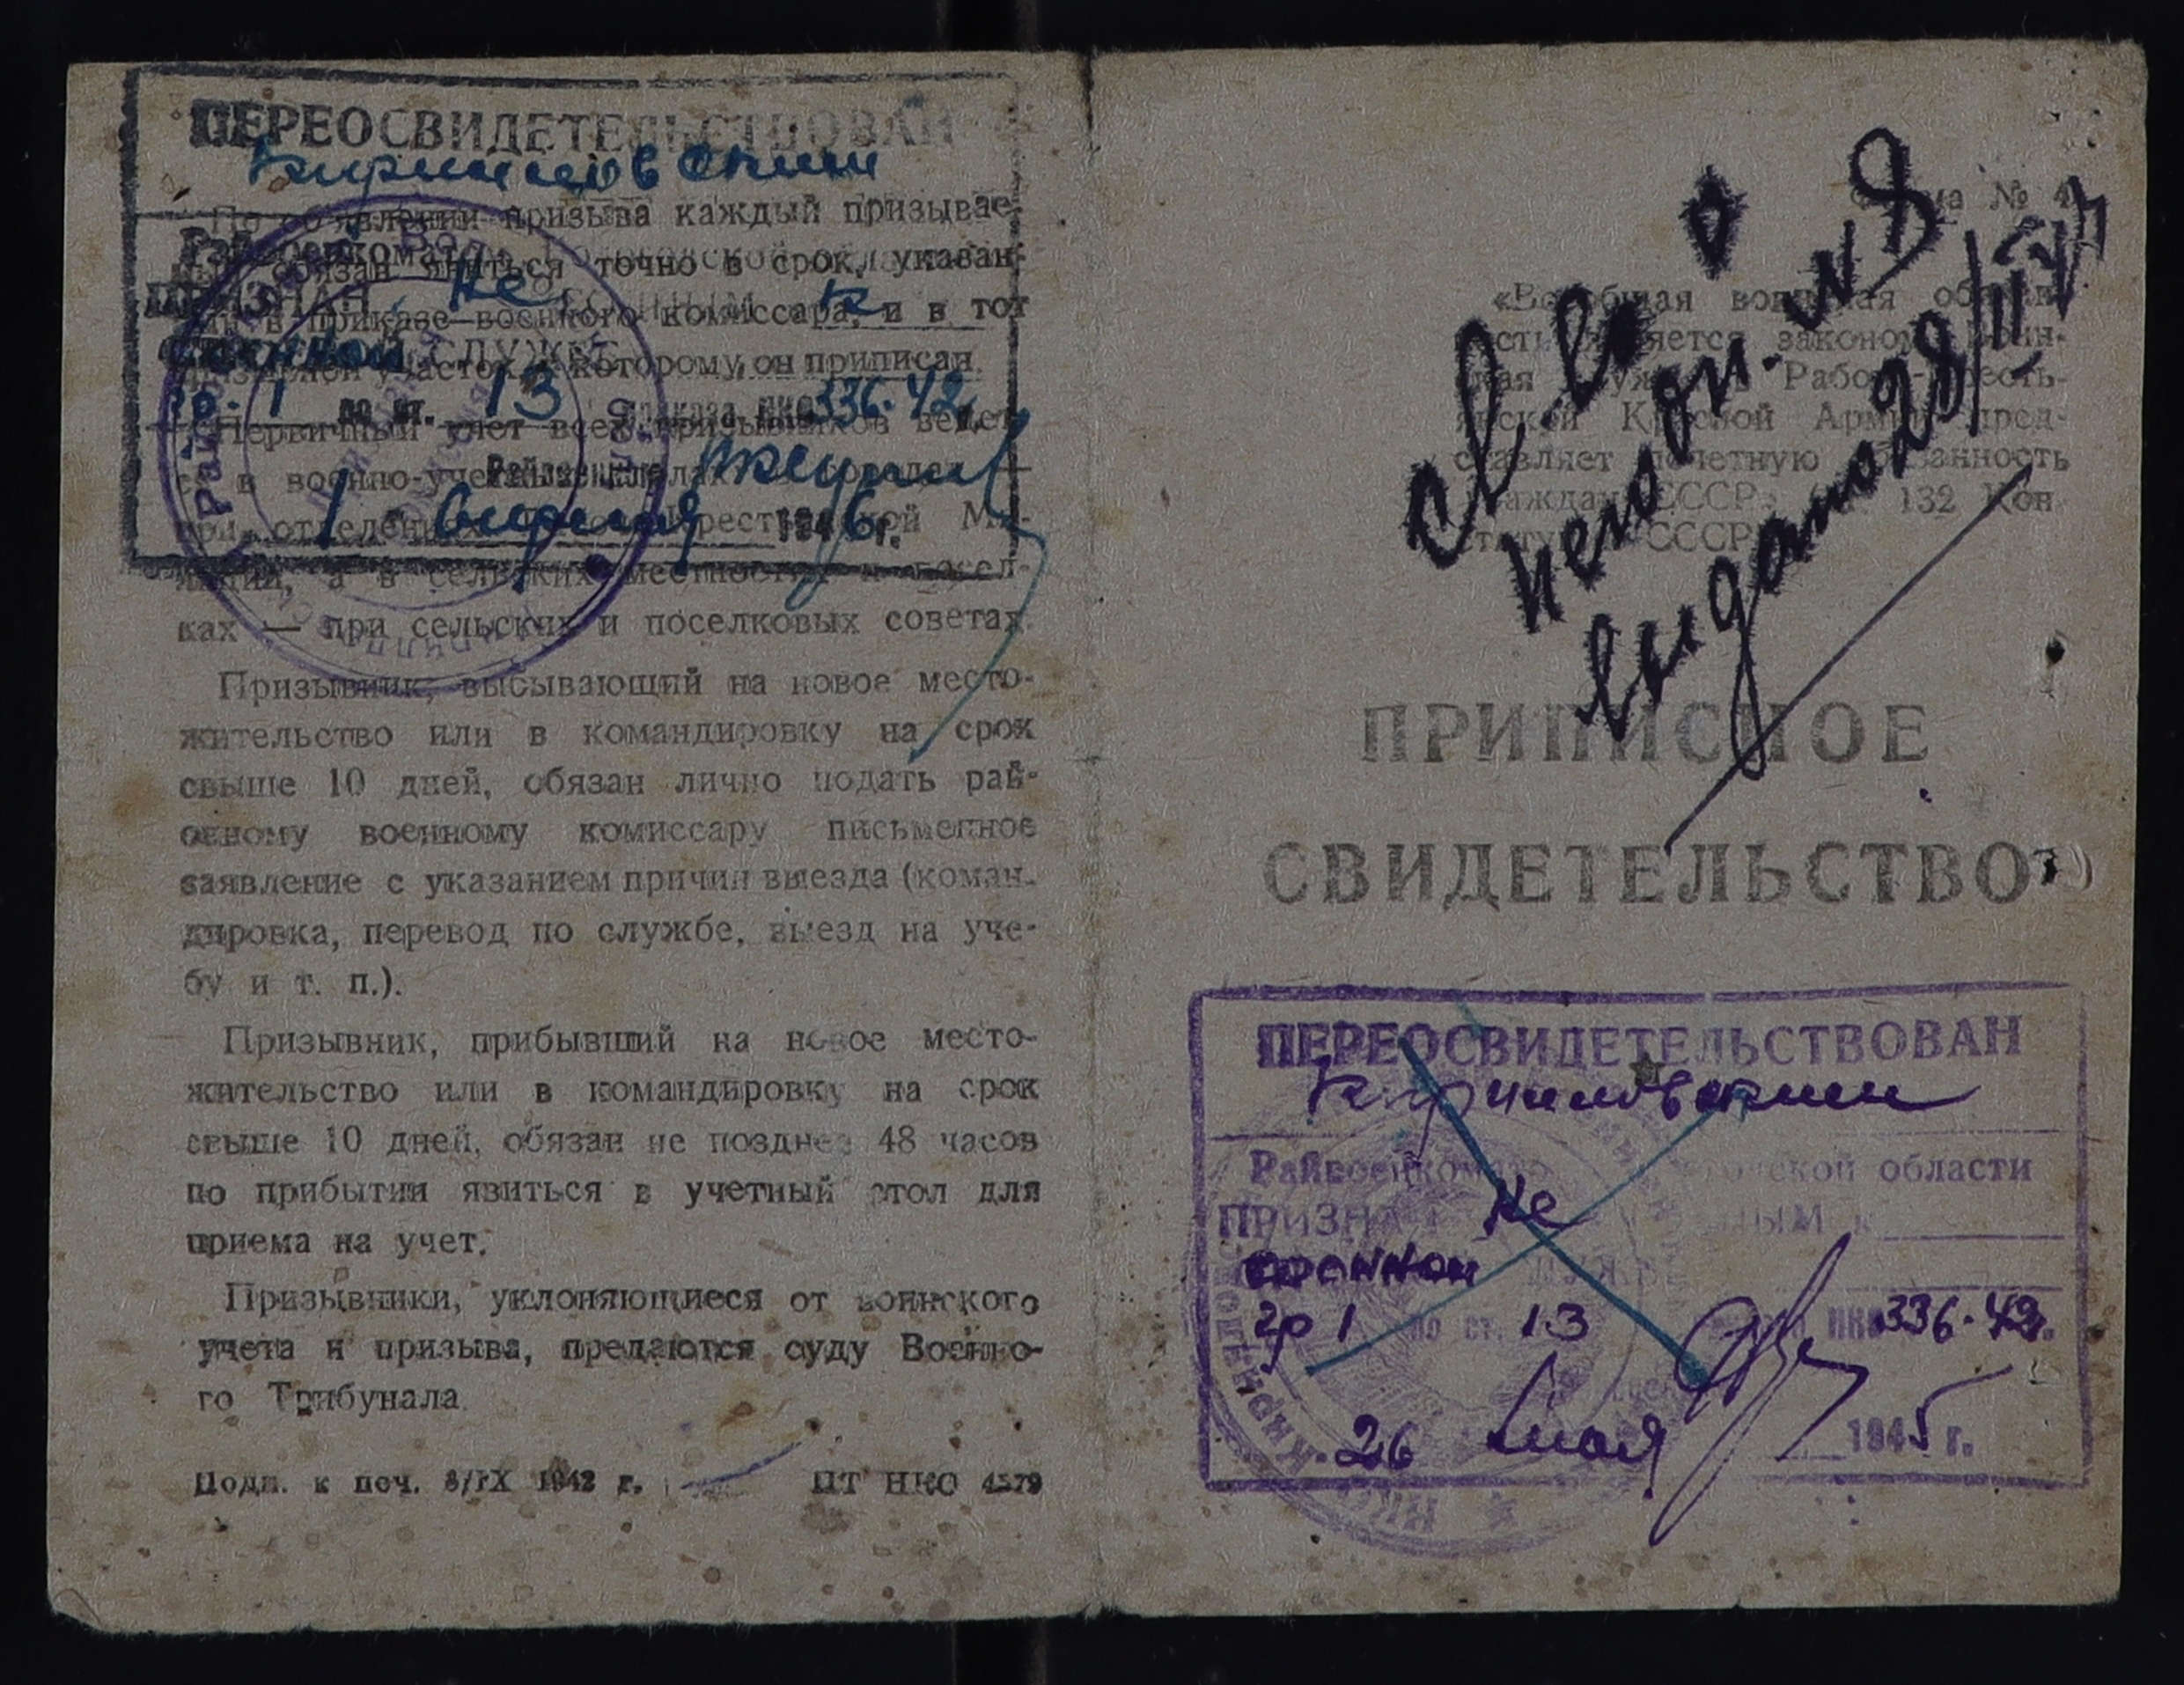 ПЕРЕОСВИДЕТЕЛЬСТВОВАН
Кирилловским
Райвоенкоматом Вологодской области
ПРИЗНАН не годным к
строевой СЛУЖБЕ
гр. 1 по ст. 13 приказа НКО 336-42
Райвоенком
1 апреля 1946 г.
По объявлении призыва каждый призывае-
мый обязан явиться точно в срок, указан-
ный в приказе военного комиссара, и в тот
призывной участок, к которому он приписан.
Первичный учет всех призывников ведет-
ся в военно-учетных столах: в городах —
при отделениях Рабоче-Крестьянской Ми-
лиции, а в сельских местностях и посел-
ках — при сельских и поселковых советах.
Призывник, выбывающий на новое место-
жительство или в командировку на срок
свыше 10 дней, обязан лично подать рай-
онному военному комиссару письменное
заявление с указанием причин выезда (коман-
дировка, перевод по службе, выезд на уче-
бу и т. п.).
Призывник, прибывший на новое место-
жительство или в командировку на срок
свыше 10 дней, обязан не позднее 48 часов
по прибытии явиться в учетный стол для
приема на учет.
Призывники, уклоняющиеся от воинского
учета и призыва, предаются суду Военно-
го Трибунала.
Подп. к печ. 8/IX 1942 г. ПТ НКО 4579
Форма № 4
«Всеобщая воинская обязан-
ность является законом. Воин-
ская служба в Рабоче-Кресть-
янской Красной Армии пред-
ставляет почетную обязанность
граждан СССР» (ст. 132 Кон-
ституции СССР)
Св. о
выдано 28/III
ПРИПИСНОЕ
СВИДЕТЕЛЬСТВО
ПЕРЕОСВИДЕТЕЛЬСТВОВАН
Кирилловским
Райвоенкоматом Вологодской области
ПРИЗНАН не годным к
строевой СЛУЖБЕ
гр 1 по ст. 13 НКО 336-42г.
26 мая 1945 г.